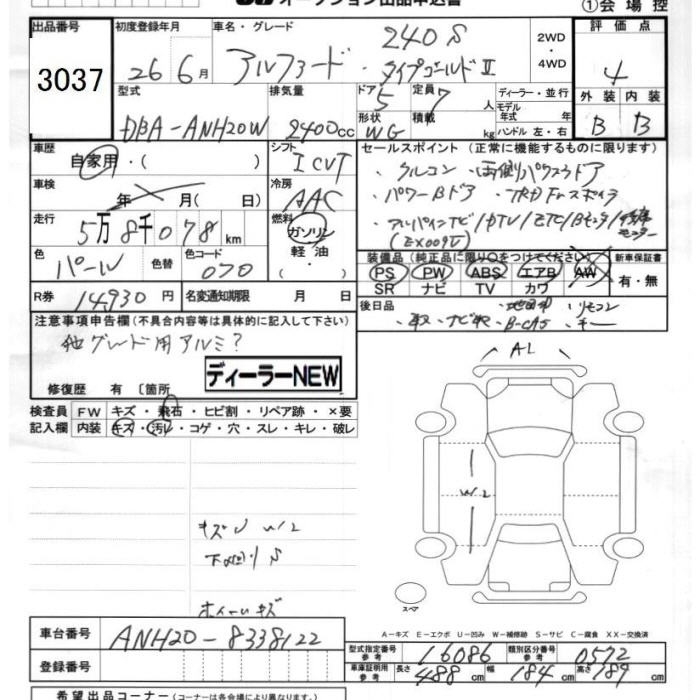 ①会場控
出品番号 初度登録年月 車名・グレード 評価点
3037 26年6月 アルファード 240S タイプゴールドⅡ 2WD・4WD 4
型式 排気量 ドア 定員 ディーラー・並行 外装 内装
DBA-ANH20W 2400cc 5 7人 モデル年式 年 B B
形状 WG 積載 kg ハンドル 左・右
車歴 シフト セールスポイント (正常に機能するものに限ります)
自家用・( ) ICVT ・クルコン ・両側パワスラドア
車検 冷房 ・パワーBドア ・TRDFrスポイラ
年 月( 日) AAC ・アルパインナビ/DTV/ETC/Bモニタ/後席モニター
走行 燃料 (EX009V)
5万8千078km ガソリン・軽油・
色 色替 色コード 装備品(純正品に限り○をつけてください) 新車保証書
パール 070 PS PW ABS エアB AW 有・無
SR ナビ TV カワ
R券 14930円 名変通知期限 月 日 後日品 ・取 ・ナビ取 ・B-CAS
注意事項申告欄(不具合内容等は具体的に記入して下さい)
他グレード用アルミ?
ディーラーNEW
修復歴 有〔箇所
AL
検査員 FW キズ・飛石・ヒビ割・リペア跡・×要
記入欄 内装 キズ・汚レ・コゲ・穴・スレ・キレ・破レ
W2
キズU W12
下回りS
ホイールキズ
スペア
A-キズ E-エクボ U-凹み W-補修跡 S-サビ C-腐食 XX-交換済
車台番号 ANH20-8338122
型式指定番号 参考 16086 類別区分番号 参考 0572
登録番号 車庫証明用 参考 長さ 488cm 幅 184cm 高さ 189cm
希望出品コーナー(コーナーは各会場により異なります。)